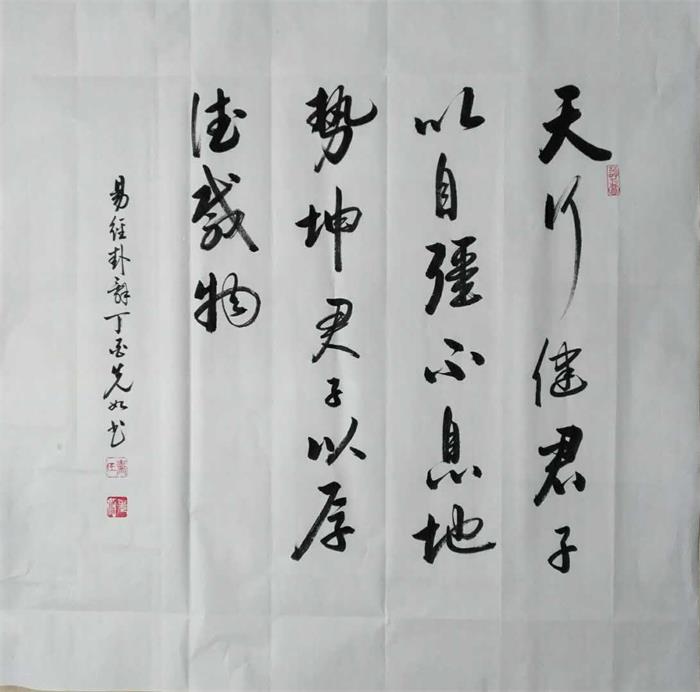 天行健君子
以自彊不息地
势坤君子以厚
德载物
易经卦辞丁酉先如书